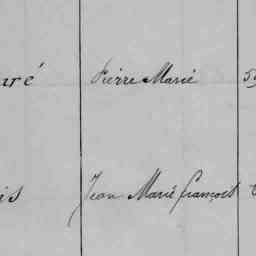 uré Pierre Marie
is Jean Marie françois